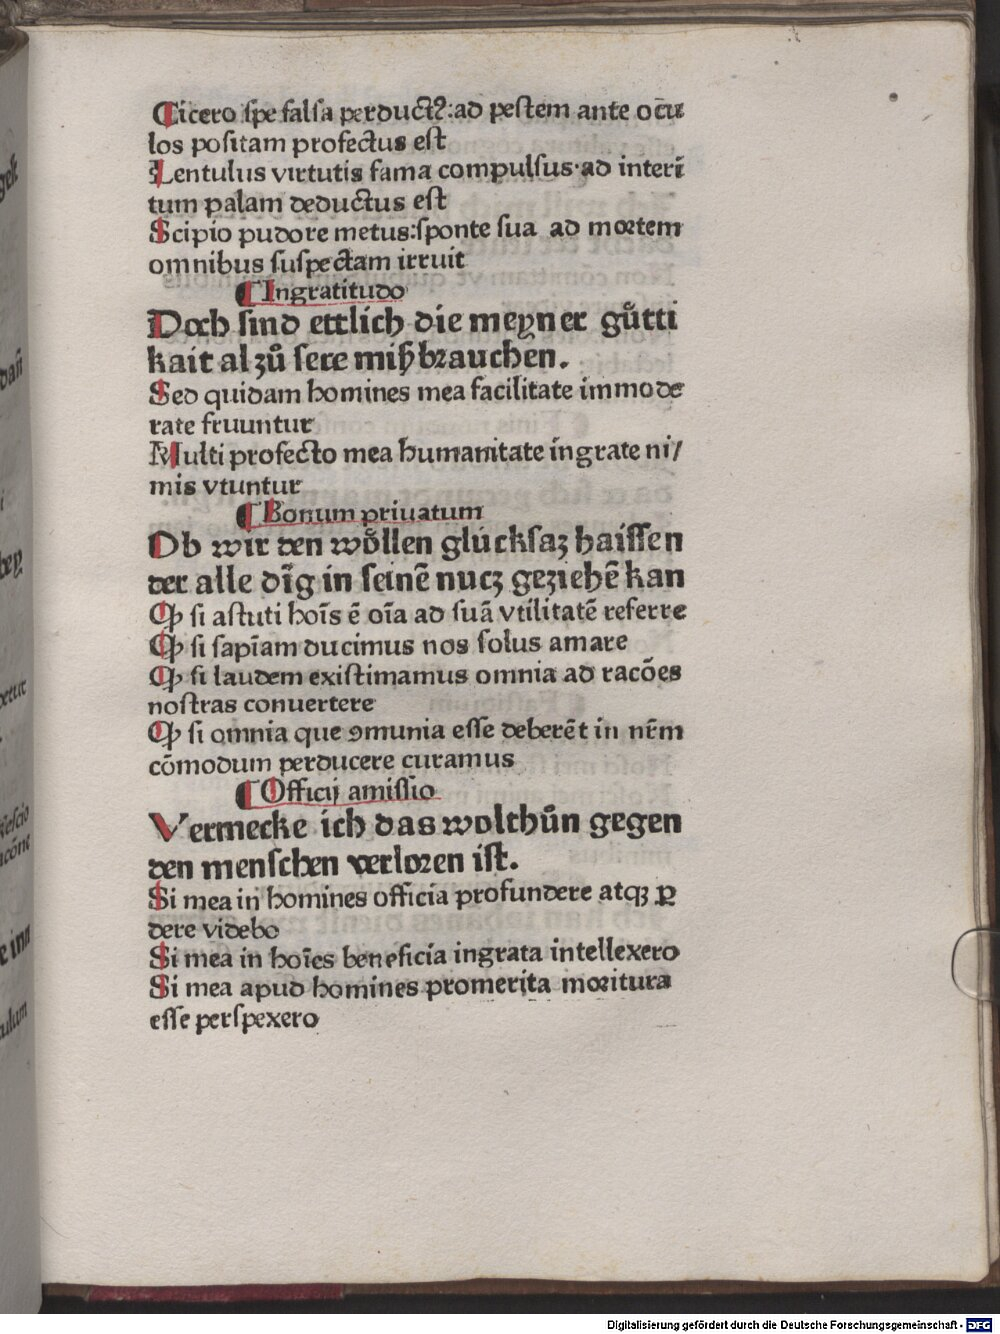 Cicero spe falsa perductꝰ: ad pestem ante ocu
los positam profectus est
Lentulus virtutis fama compulsus· ad interi̅
tum palam deductus est
Scipio pudore metus: sponte sua ad mortem
omnibus suspectam irruit
¶ Ingratitudo
Doch sind ettlich die meyner gůtti
kait al zů sere mißbrauchen.
Sed quidam homines mea facilitate immode
rate fruuntur
Multi profecto mea humanitate ingrate ni/
mis vtuntur
¶ Bonum priuatum
Ob wir den wo̊llen glúcksaʒ haissen
der alle di̅g in seine̅ nucʒ geziehe̅ kan
Ꝙ si astuti hoi̅s e̅ oi̅a ad sua̅ vtilitate̅ referre
Ꝙ si sapi̅am ducimus nos solus amare
Ꝙ si laudem existimamus omnia ad raco̅es
nostras conuertere
Ꝙ si omnia que ꝯmunia esse debere̅t in nr̅m
co̅modum perducere curamus
¶ Officij amissio
Vermecke ich das wolthůn gegen
den menschen verloren ist.
Si mea in homines officia profundere atqꝫ ꝑ
dere videbo
Si mea in hoi̅es beneficia ingrata intellexero
Si mea apud homines promerita moritura
esse perspexero
Digitalisierung gefördert durch die Deutsche Forschungsgemeinschaft - DFG